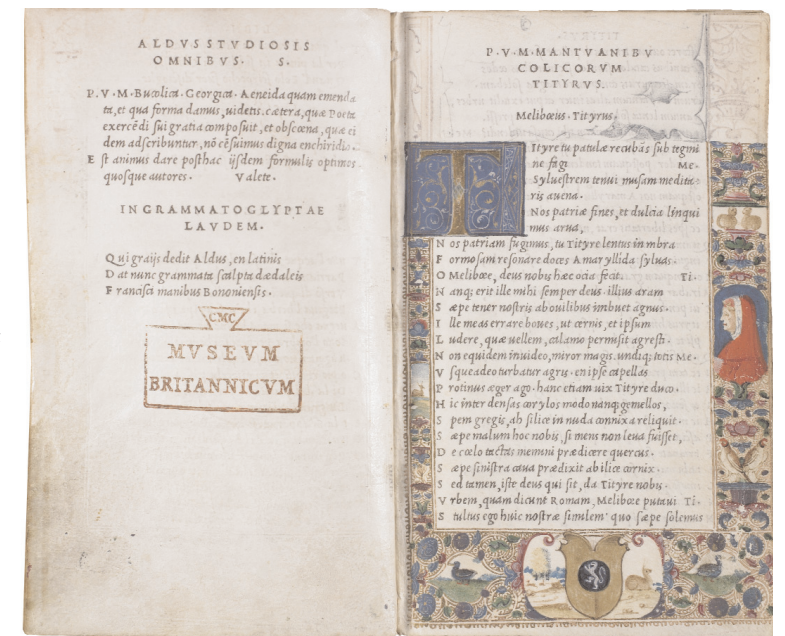 ALDVS STVDIOSIS
OMNIBVS. S.
P. V. M. Bucolica. Georgica. Aeneida quam emenda
ta, et qua forma damus, uidetis. cætera, quæ Poeta
exercẽdi sui gratia composuit, et obscœna, quæ ei
dem adscribuntur, nõ cẽsuimus digna enchiridio.
Est animus dare posthac ijsdem formulis optimos
quosque autores. Valete.
IN GRAMMATOGLYPTAE
LAVDEM.
Qui graijs dedit Aldus, en latinis
Dat nunc grammata scalpta dædaleis
Francisci manibus Bononiensis.
CMC
MVSEVM
BRITANNICVM
P. V. M. MANTVANI BV
COLICORVM
TITYRVS.
Melibœus. Tityrus.
Tityre tu patulæ recubãs sub tegmi
ne fagi Me.
Syluestrem tenui musam medita
ris auena.
Nos patriæ fines, et dulcia linqui
mus arua,
Nos patriam fugimus, tu Tityre lentus in mbra
Formosam resonare doces Amaryllida syluas.
O Melibœe, deus nobis hæc ocia fecit. Ti.
Nanq; erit ille mihi semper deus. illius aram
Sæpe tener nostris ab ouilibus imbuet agnus.
Ille meas errare boues, ut cernis, et ipsum
Ludere, quæ uellem, calamo permisit agresti.
Non equidem inuideo, miror magis. undiq; totis Me.
Vsque adeo turbatur agris. en ipse capellas
Protinus æger ago. hanc etiam uix Tityre duco.
Hic inter densas corylos modo nanq; gemellos,
Spem gregis, ah silice in nuda connixa reliquit.
Sæpe malum hoc nobis, si mens non leua fuisset,
De cœlo tactas memini prædicere quercus.
Sæpe sinistra caua prædixit ab ilice cornix.
Sed tamen, iste deus qui sit, da Tityre nobis.
Vrbem, quam dicunt Romam, Melibœe putaui Ti.
Stultus ego huic nostræ similem quo sæpe solemus